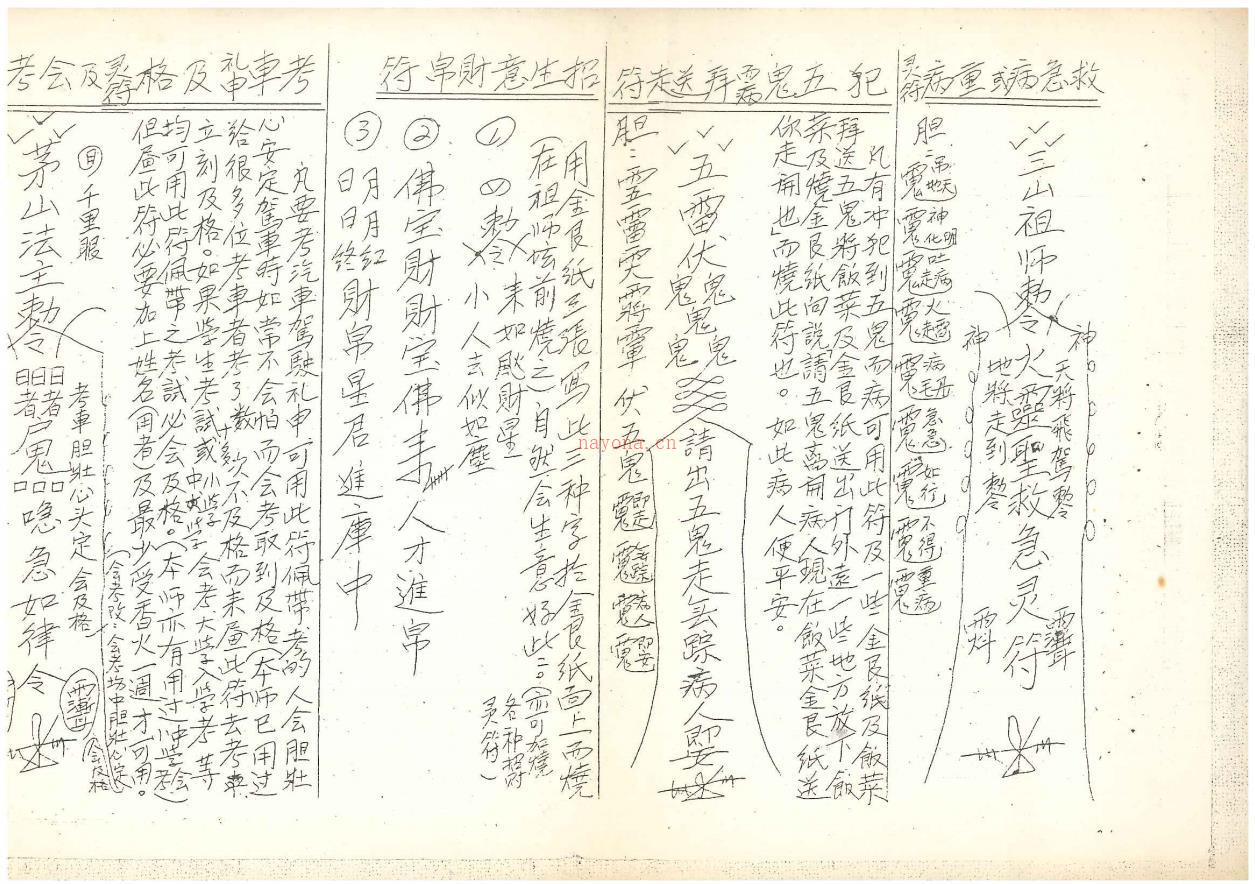 救急病或重病灵符
三山祖师勅令火靈聖救急灵符
神
天將飛駕勅令
神
地將走到勅令
胆：
吊地天
神明化
吐病走
火走
病
急急
如行
不得
重病
犯五鬼病拜送走符
凡有冲犯到五鬼而病可用此符及一些金艮纸及飯菜
拜送五鬼將飯菜及金艮纸送出门外遠一些地方放下飯
菜及燒金艮紙向説「請五鬼离開病人現在飯菜金艮纸送
你走開也」而燒此符也。如此病人便平安。
五雷伏鬼鬼鬼鬼鬼請出五鬼走無踪病人即安
胆：
伏五鬼
即走
無踪
病人
即安
招生意財帛符
用金艮紙三張寫此三种字於金艮纸面上而燒
在祖师坛前燒之自然会生意好此。（亦可加燒
各祁招財
灵符）
①
勅令
来如颷財星
小人去似如塵
②
佛宝財財宝佛
人才進帛
③
明月紅
日日終
財帛星君進庫中
考車礼申及格灵符及会考
凡要考汽車駕駛礼申可用此符佩帶考的人会胆壯
心安定駕車時如常不会怕而会考取到及格（本师已用过
給很多位考車者考了数十多次不及格而来畵此符去考車
立刻及格。如果学生考試或小学中学会考大学入学考等
均可用此符佩带之考試必会及格。（本师亦有用过中学会考）
但畵此符必要加上姓名（用者）及最少受香火一周才可用。
（会考改：会考坊中胆壯心定
会及格
考車胆壯心头定会及格
千里眼
茅山法主勅令
日日日
者者
尸鬼
品品
急如律令
nayona.cn